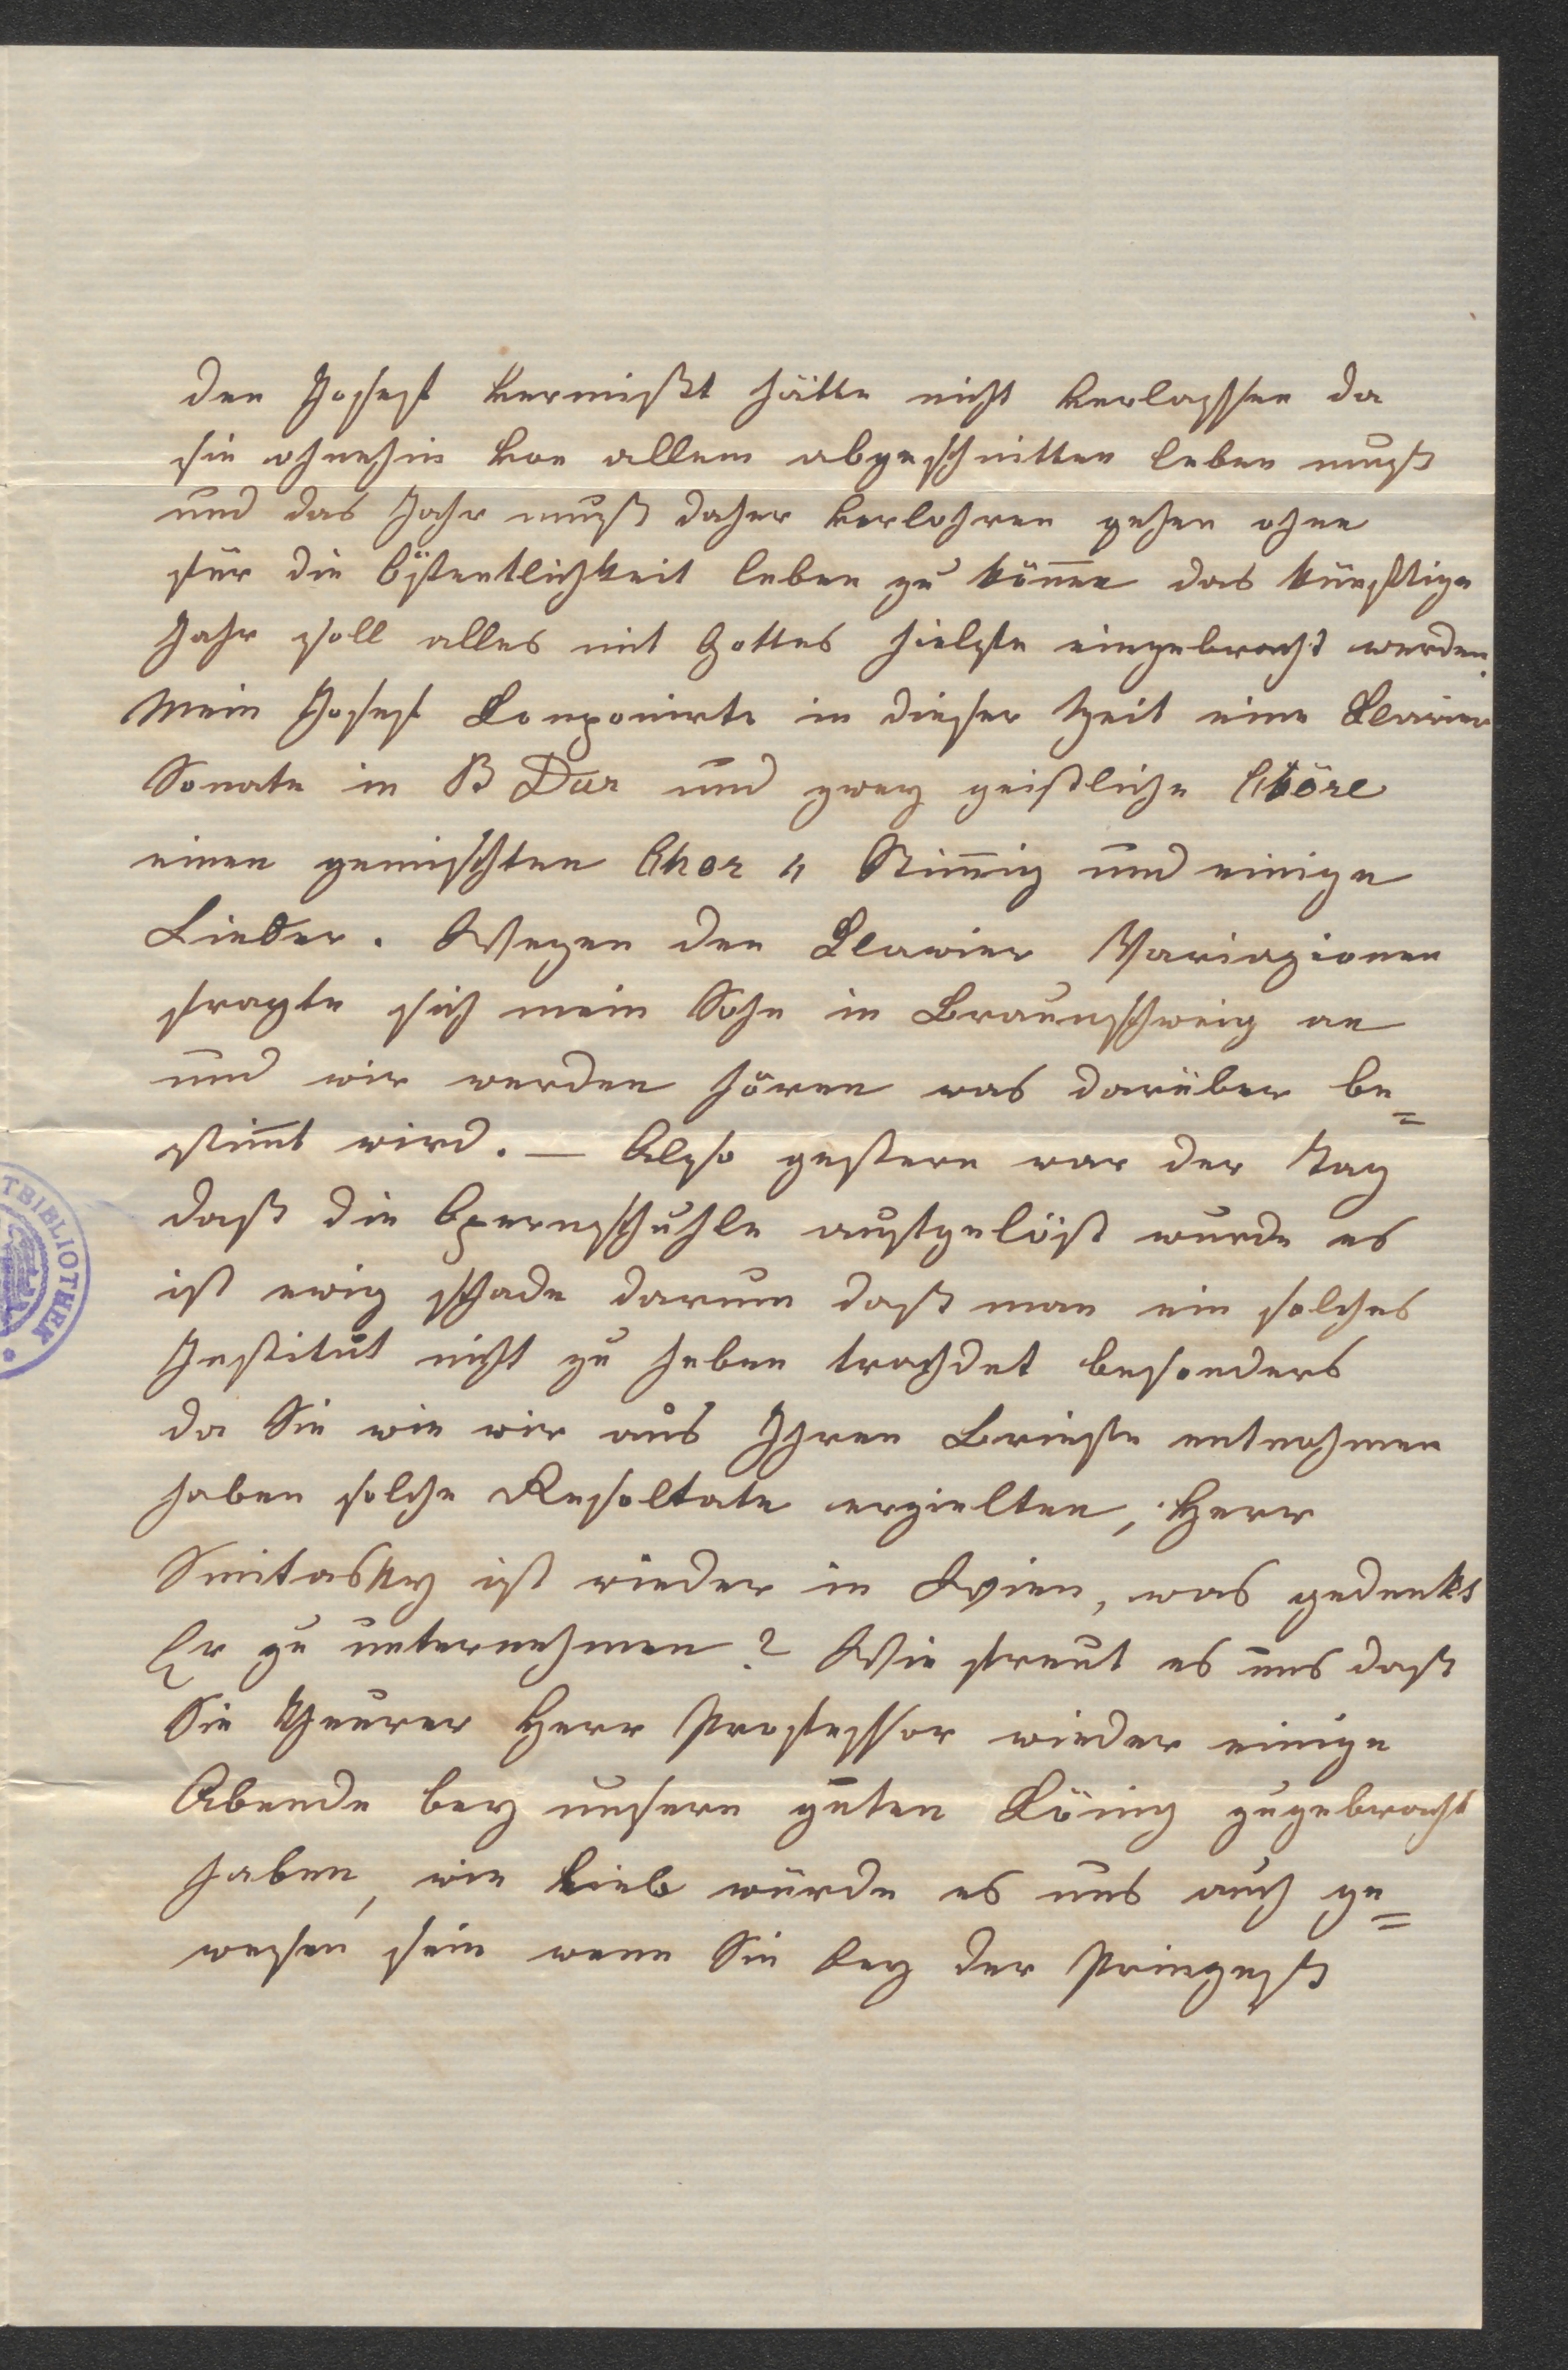 den Josef vermißt hätte nicht verlassen da
sie ohnehin von allem abgeschnitten leben muß
und das Jahr muß daher verlohren gehen ohne
für die Öffentlichkeit leben zu kön̄en das künftige
Jahr soll alles mit Gottes hielfe eingebracht werden.
Mein Josef Componirte in dieser Zeit eine Clavier
Sonate in B Dur und zwey geistliche Chöre
einen gemischten Chor 4 Stim̄ig und einige
Lieder. Wegen den Clawier Variazionen
fragte sich mein Sohn in Braunschweig an
und wir werden hören was darüber be=
stim̄t wird. — Also gestern war der Tag
daß die Opernschuhle aufgelöst wurde es
ist ewig schade darum daß man ein solches
Institut nicht zu heben trachdet besonders
da Sie wie wir aus Ihren Briefe entnohmen
haben solche Resoltate erzielten, Herr
Smitasky ist wieder in Wien, was gedenkt
Er zu unternehmen? Wie freut es uns daß
Sie Theurer Herr Professor wieder einige
Abende bey unsern guten König zugebracht
haben, wie lieb würde es uns auch ge=
wesen sein wenn Sie bey der Prinzeß
TBIBLIOTHEK